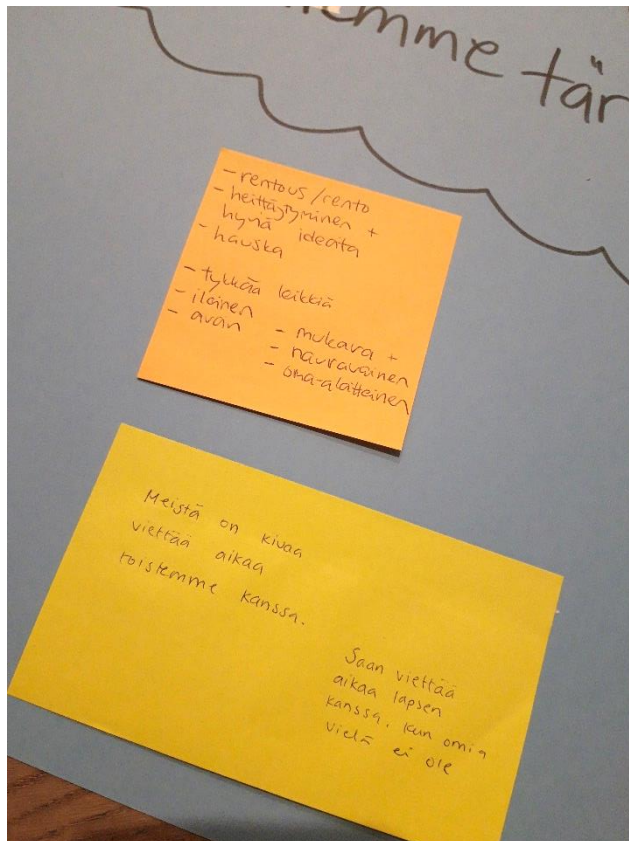 emme tär
- rentous/rento
- heittäytyminen +
hyviä ideoita
- hauska
- tykkää leikkiä
- iloinen
- avoin
- mukava +
- nauravainen
- oma-aloitteinen
Meistä on kivaa
viettää aikaa
toistemme kanssa.
Saan viettää
aikaa lapsen
kanssa, kun omia
vielä ei ole